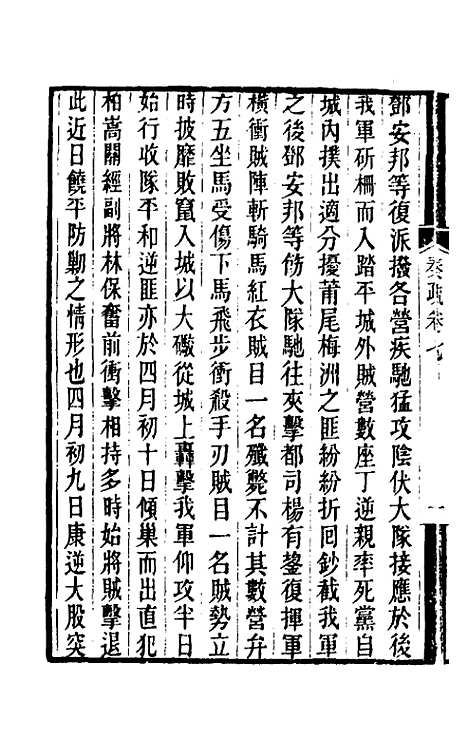 鄧安邦等復派撥各營疾馳猛攻陰伏大隊接應於後
我軍斫柵而入踏平城外賊營數座丁逆親率死黨自
城內撲出適分擾莆尾梅洲之匪紛紛折回鈔截我軍
之後鄧安邦等飭大隊馳往夾擊都司楊有鋆復揮軍
橫衝賊陣斬騎馬紅衣賊目一名殲斃不計其數營弁
方五坐馬受傷下馬飛步衝殺手刃賊目一名賊勢立
時披靡敗竄入城以大礮從城上轟擊我軍仰攻半日
始行收隊平和逆匪亦於四月初十日傾巢而出直犯
柏嵩關經副將林保奮前衝擊相持多時始將賊擊退
此近日饒平防勦之情形也四月初九日康逆大股突
奏疏卷七